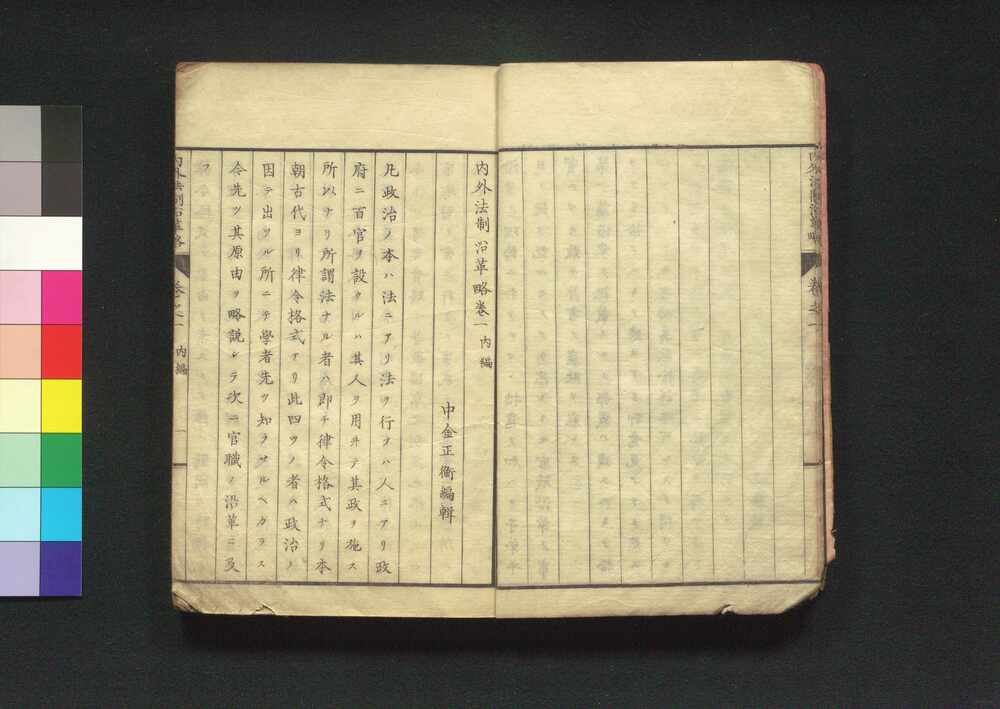 内外法制沿革略
卷之一
内外法制沿革略卷一 内編
中金正衡編輯
凡政治ノ本ハ法ニアリ法ヲ行フハ人ニアリ政
府ニ百官ヲ設クルハ其人ヲ用井テ其政ヲ施ス
所以ナリ所謂法ナル者ハ即チ律令格式ナリ本
朝古代ヨリ律令格式アリ此四ツノ者ハ政治ノ
因テ出ツル所ニテ學者先ツ知ラサルヘカラス
今先ツ其原由ヲ略説シテ次ニ官職ノ沿革ニ及
フ
内外法制沿革略
卷之一 内編 一